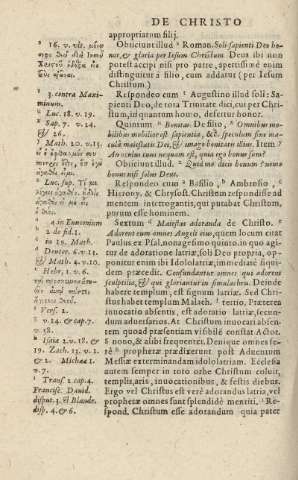 DE CHRISTO
appropriatum filij.
Obiiciunt illud Roman. Soli sapienti Deo honor, & gloria per Iesum Christum Deus ibi non
potest accipi nisi pro patre, apertissimè enim
distinguitur a filio, cum addatur (per Iesum
Christum.)
Respondeo cum Augustino illud soli: Sapienti Deo, de tota Trinitate dici, cui per Christum, in quantum homo, defertur honor.
Quintum Bonitas. De filio, Omnibus mobilibus mobilior est sapientia, &c. speculum sine macula maiestatis Dei, & imago bonitatis illius. Item
An oculus tuus nequam est, quia ego bonus sum?
Obiiciunt illud. Quid me dicis bonum? nemo
bonus nisi solus Deus.
Respondeo cum Basilio, Ambrosio,
Hierony. & Chrysost. Christum respondisse ad
mentem interrogantis, qui putabat Christum,
purum esse hominem.
Sextum Maiestas adoranda de Christo.
Adorent eum omnes Angeli eius, quem locum citat
Paulus ex Psal. nonagesimo quinto. in quo agitur de adoratione latriæ, soli Deo propria, opponitur enim ibi Idololatriæ, immediatè siquidem præcedit. Confundantur omnes qui adorent
sculptilia, & qui gloriantur in simulachris. Deinde
habere templum, est signum latriæ. Sed Christus habet templum Malach. tertio, Præterea
inuocatio absentis, est adoratio latriæ, secundum aduersarios. At Christum inuocari absentem quoad præsentiam visibilẽ constat Actor.
nono, & alibi frequenter. Denique omnes ferè prophetæ prædixerunt post Aduentum
Messiæ exterminandam idololatriam. Ecclesia
autem semper in toto orbe Christum coluit,
templis, aris, inuocationibus, & festis diebus.
Ergo vel Christus est verè adorandus latria, vel
prophetæ omnes sunt splendidè mentiti. Respond. Christum esse adorandum quia pater
16. v. vlt.
3. contra Maximinum.
Luc. 18. v. 19.
Sap. 7. v. 24.
& 26.
Math. 20. v. 15.
Luc. sup.
a in Eunomium
2. de fid. 1.
in 19. Math.
Deuter. 6. v. 13.
Math. 4. v. 10.
Hebr. 1. v. 6.
Vers. 1.
v. 14. & cap. 7.
v. 58.
Isaiæ 2. v. 18. &
19. Zach. 13. v. 1.
& 2. Micheæ 1.
v. 7.
Trans. 2. cap. 4.
Francisc. Dauid.
disput. 3. & Blandr.
disp. 4. & 6.